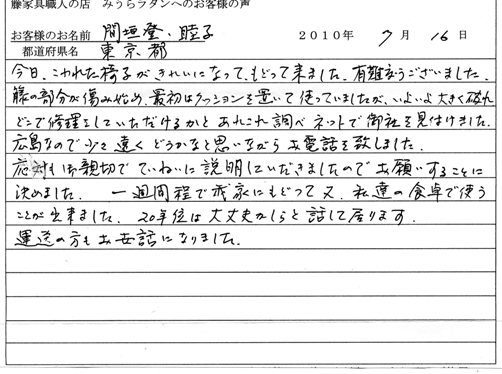 藤家具職人の店　みうらラタンへのお客様の声
お客様のお名前　間垣登、睦子　２０１０年　7　月　16　日
都道府県名　東京都
今日、こわれた椅子がきれいになって、もどって来ました。有難うございました。
籐の部分が傷み始め、最初はクッションを置いて使っていましたが、いよいよ大きく破れ
どこで修理をしていただけるかとあれこれ調べネットで御社を見付けました。
広島なので少々遠くどうかなと思いながらお電話を致しました。
応対も御親切でていねいに説明していただきましたのでお願いすることに
決めました。一週間程で我家にもどって又、私達の食卓で使う
ことが出来ました。20年位は大丈夫かしらと話して居ります。
運送の方もお世話になりました。